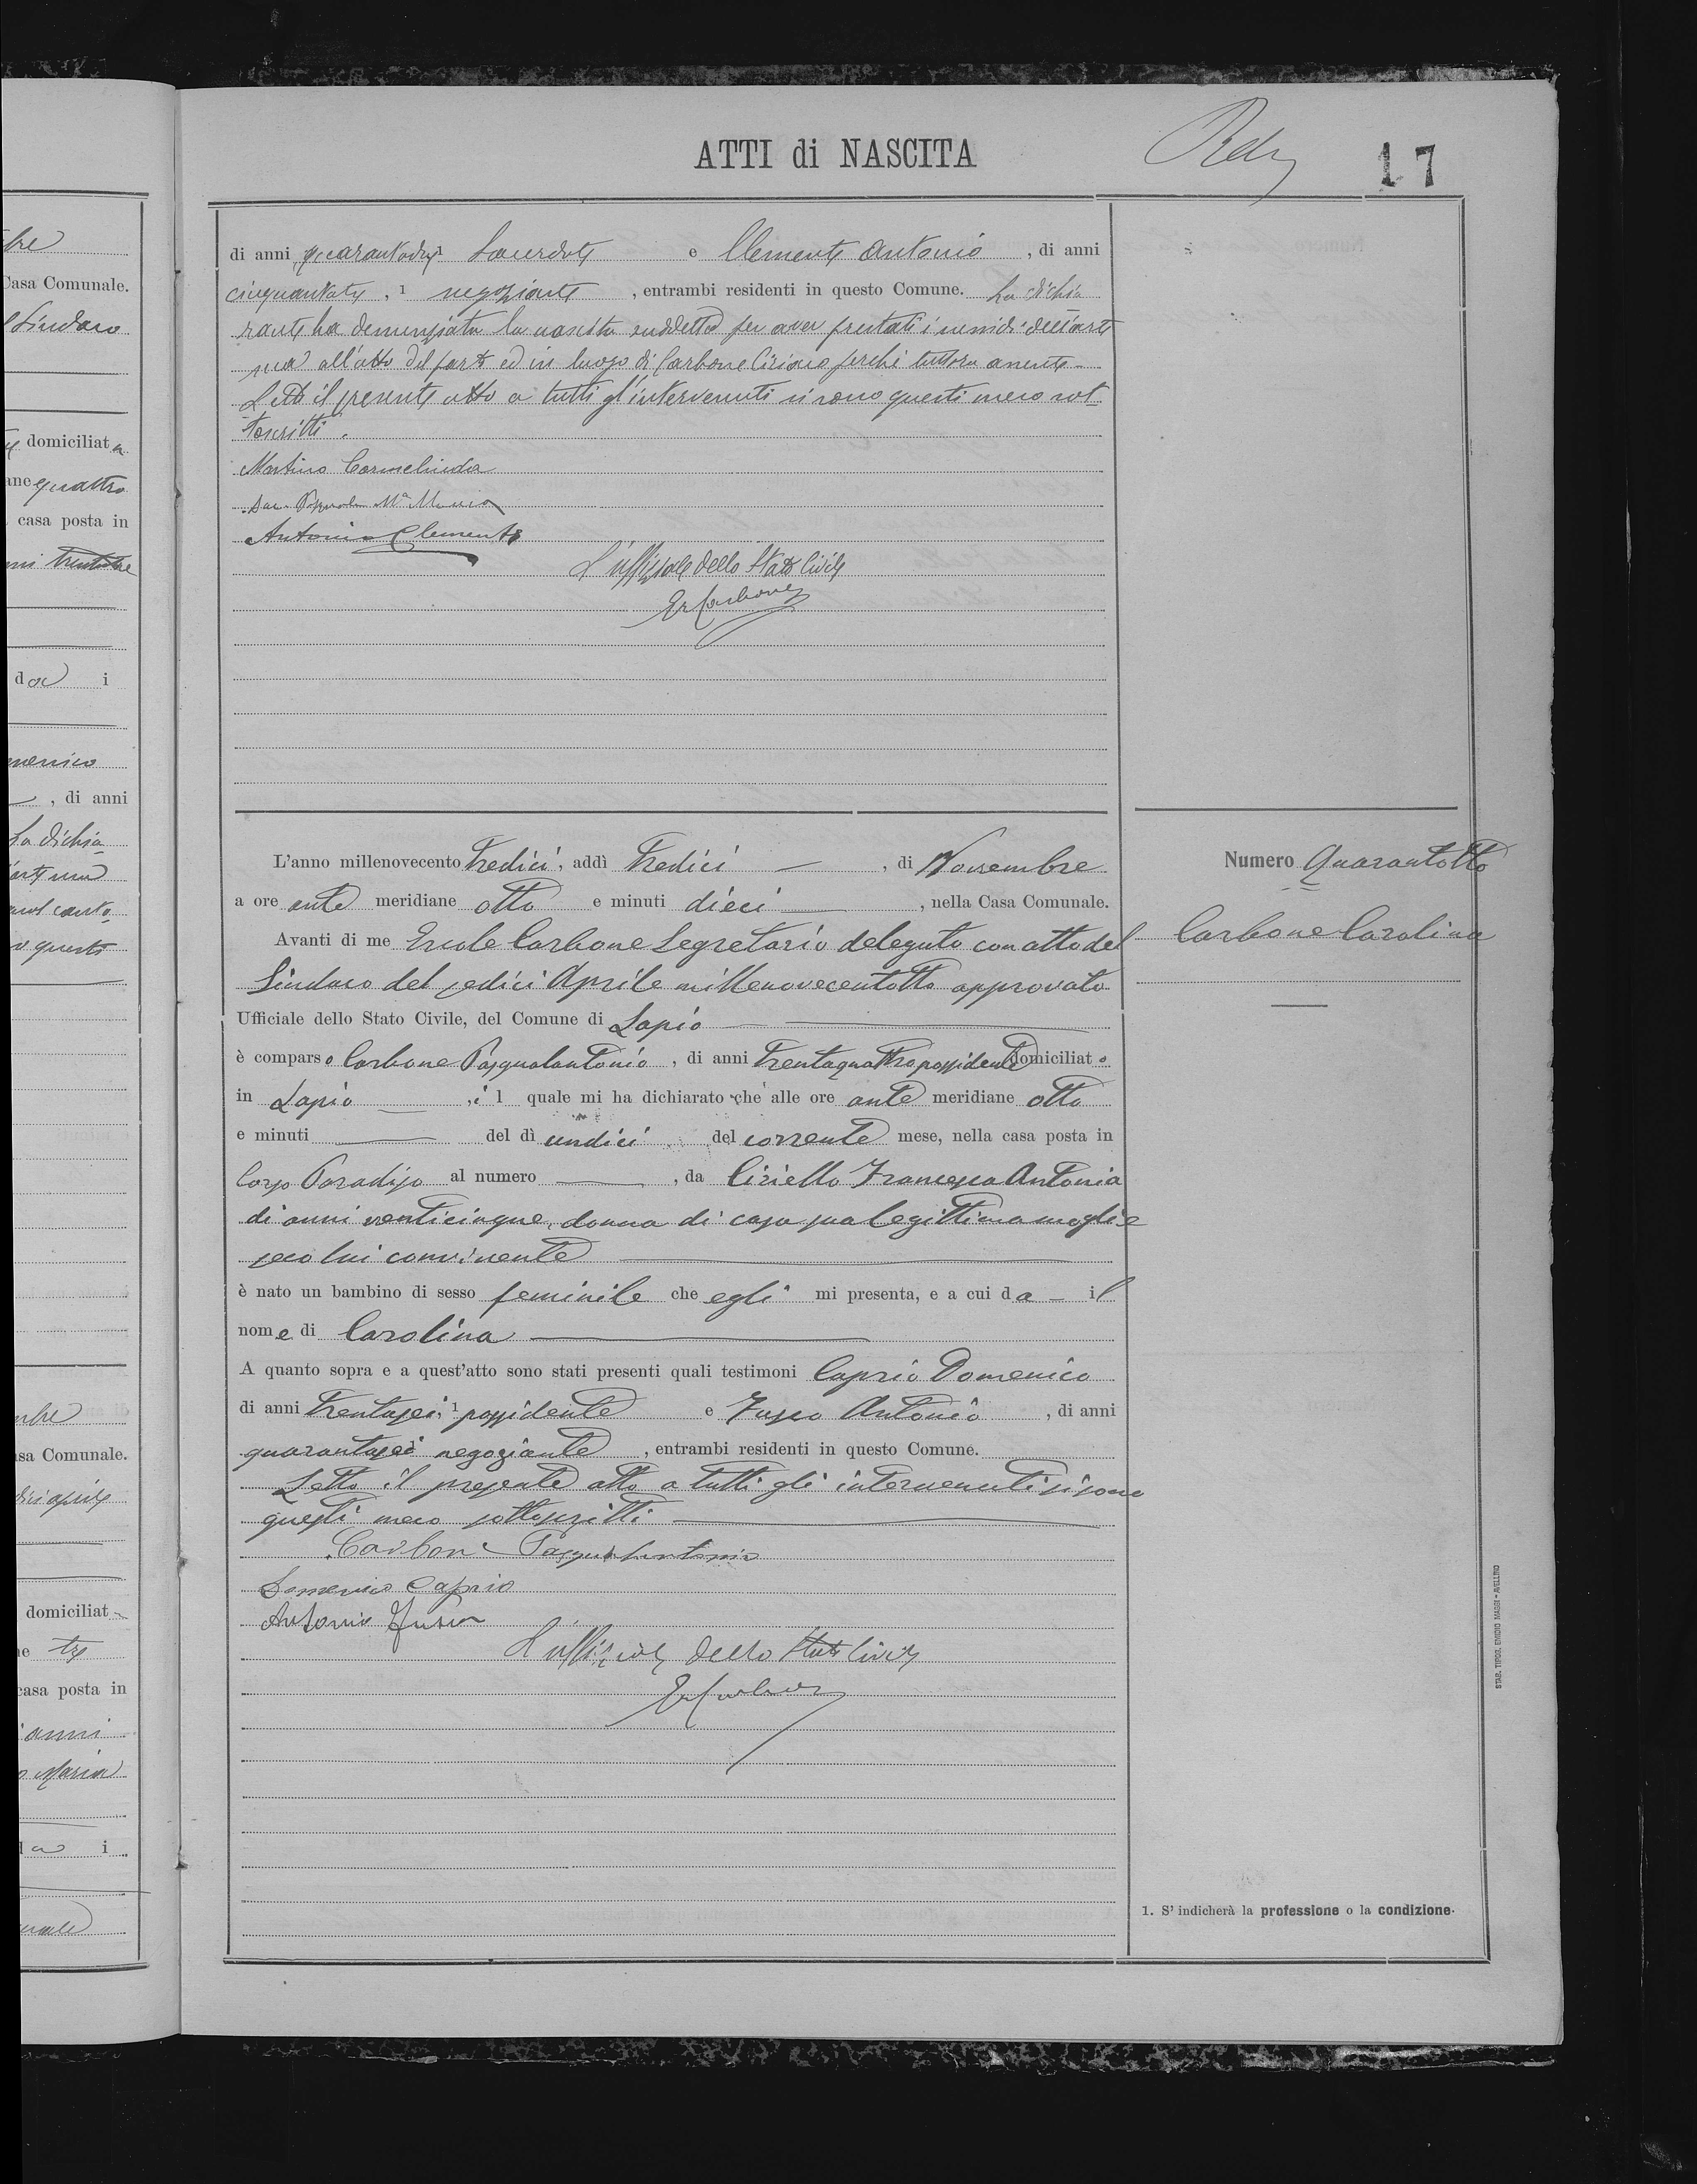 ATTI di NASCITA
17
di anni quarantadue 1 Sacerdote e Clemente Antonio, di anni
cinquantatre, 1 negoziante, entrambi residenti in questo Comune. La dichia
rante ha denunziata la nascita suddetta per aver prestati i rimedi dell'arte
sua all'atto del parto ed in luogo di Carbone Ciriaco perchè tuttora assente -
Letto il presente atto a tutti gl'intervenuti si sono questi meco sot
toscritti.
Martino Carmelinda
Antonio Clemente
L'uffiziale dello Stato Civile
Er Carbone
L'anno millenovecento Tredici, addì Tredici, di Novembre
a ore ante meridiane otto e minuti dieci, nella Casa Comunale.
Avanti di me Ercole Carbone Segretario delegato con atto del
Sindaco del sedici Aprile millenovecentotto approvato
Ufficiale dello Stato Civile, del Comune di Lapio
è comparso Carbone Pasqualantonio, di anni Trentaquattro possidente domiciliato
in Lapio, il quale mi ha dichiarato che alle ore ante meridiane otto
e minuti — del dì undici del corrente mese, nella casa posta in
Corso Paradiso al numero —, da Ciriello Francesca Antonia
di anni venticinque, donna di casa sua legittima moglie
seco lui convivente
è nato un bambino di sesso feminile che egli mi presenta, e a cui da - il
nome di Carolina
A quanto sopra e a quest'atto sono stati presenti quali testimoni Caprio Domenico
di anni Trentasei, 1 possidente e Fusco Antonio, di anni
quarantasei negoziante, entrambi residenti in questo Comune.
Letto il presente atto a tutti gli intervenuti si sono
questi meco sottoscritti
Carbone Pasqualantonio
Domenico Caprio
Antonio Fusco
L'uffiziale dello Stato Civile
Er Carbone
Numero Quarantotto
Carbone Carolina
1. S'indicherà la professione o la condizione.
STAB. TIPOGR. EMIDIO MAGGI - AVELLINO
bre
Casa Comunale.
Sindaco
domiciliata
quattro
casa posta in
trentatre
da i
menico
, di anni
La dichia
questi
Casa Comunale.
aprile
domiciliat
tre
casa posta in
anni
Maria
da i